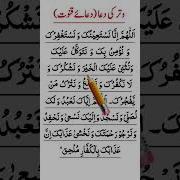 وتر کی دعا (دعائے قنوت)
اَللّٰهُمَّ اِنَّا نَسْتَعِيْنُكَ وَ نَسْتَغْفِرُكَ
وَ نُؤْمِنُ بِكَ وَ نَتَوَكَّلُ عَلَيْكَ
وَ نُثْنِيْ عَلَيْكَ الْخَيْرَ وَ نَشْكُرُكَ
وَ لَا نَكْفُرُكَ وَ نَخْلَعُ وَ نَتْرُكُ
اِيَّاكَ نَعْبُدُ
وَ نَسْجُدُ وَ اِلَيْكَ نَسْعٰى وَ نَحْفِدُ
وَ نَرْجُوْ رَحْمَتَكَ وَ نَخْشٰى عَذَابَكَ اِنَّ
عَذَابَكَ بِالْكُفَّارِ مُلْحِقٌ